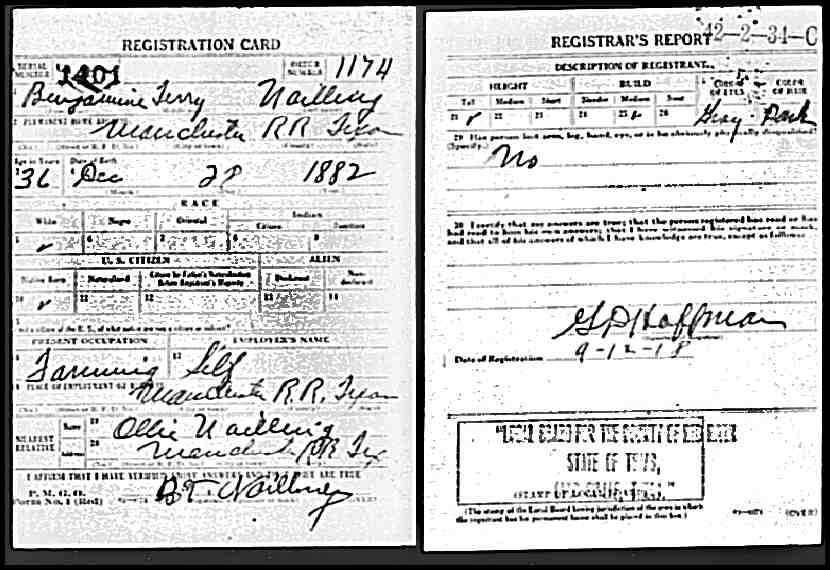 REGISTRATION CARD
SERIAL NUMBER 1401 ORDER NUMBER 1174
Benjamine Terry Nailling
PERMANENT HOME ADDRESS
Manchester RR Texas
Age in Years Date of Birth
36 Dec 28 1882
RACE
White Negro Oriental Indian
Citizen
5 ✓ 6
U. S. CITIZEN ALIEN
Native Born Naturalized Citizen by Father's Naturalization Before Registrant's Majority Declarant Non-declarant
10 ✓ 11 12 13 14
PRESENT OCCUPATION EMPLOYER'S NAME
Farming Self
PLACE OF EMPLOYMENT OR BUSINESS
Manchester R.R. Texas
NEAREST RELATIVE Name Ollie Nailling
Address Manchester RR Tex
I AFFIRM THAT I HAVE VERIFIED ABOVE ANSWERS AND THAT THEY ARE TRUE
P. M. G. O.
Form No. 1 (Red) B.T. Nailling (OVER)
REGISTRAR'S REPORT 42-2-34-C
DESCRIPTION OF REGISTRANT
HEIGHT BUILD COLOR OF EYES COLOR OF HAIR
Tall Medium Short Slender Medium Stout
21 ✓ 22 23 24 25 26 Gray Dark
29 Has person lost arm, leg, hand, eye, or is he obviously physically disqualified?
(Specify.) No
30 I certify that my answers are true; that the person registered has read or has
had read to him his own answers; that I have witnessed his signature or mark,
and that all of his answers of which I have knowledge are true, except as follows:
G.P. Hoffman
Date of Registration 9-12-18
LOCAL BOARD FOR THE COUNTY OF RED RIVER
STATE OF TEXAS,
(STAMP OF LOCAL BOARD)
(The stamp of the Local Board having jurisdiction of the area in which
the registrant has his permanent home shall be placed in this box.) (OVER)